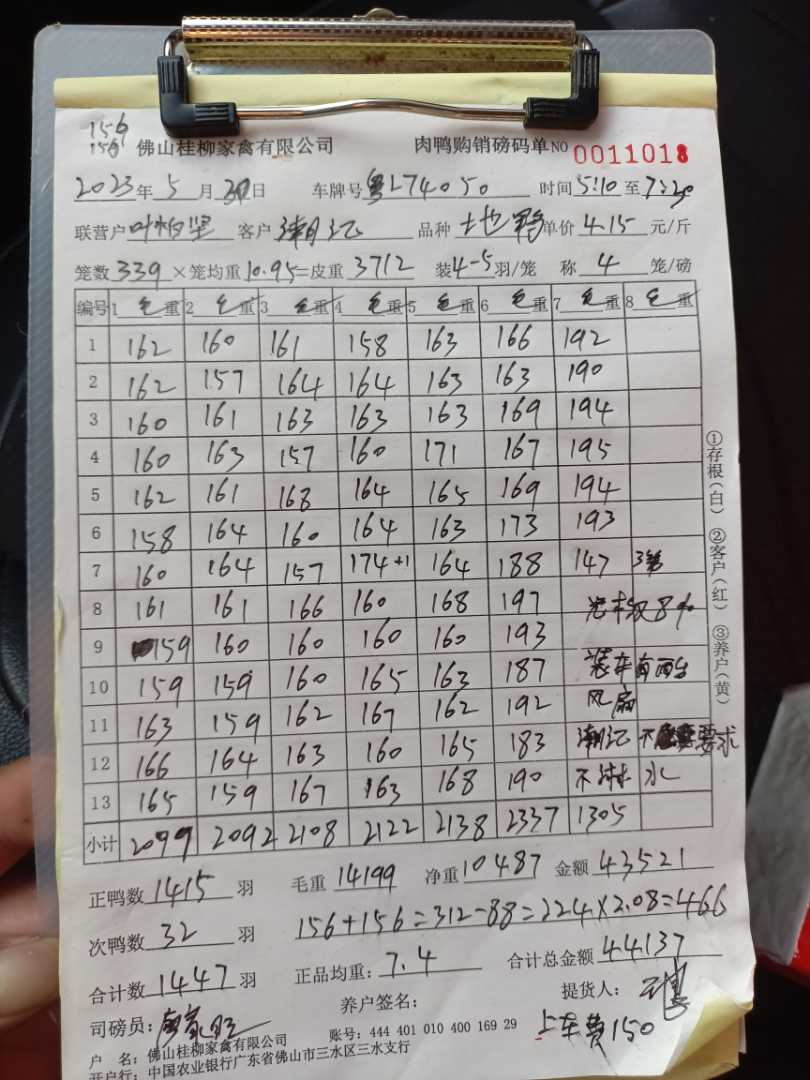 159
159 佛山桂柳家禽有限公司 肉鸭购销磅码单NO 0011018
2023年5月30日 车牌号粤L74050 时间5:10至7:20
联营户叶柏坚 客户潮记 品种土地鸭 单价4.15元/斤
笼数339×笼均重10.95=皮重3712 装4-5羽/笼 称4笼/磅
编号 1毛重 2毛重 3毛重 4毛重 5毛重 6毛重 7毛重 8毛重
1 162 160 161 158 163 166 192
2 162 157 164 164 163 163 190
3 160 161 163 163 163 169 194
4 160 163 157 160 171 167 195
5 162 161 168 164 165 169 194
6 158 164 160 164 163 173 193
7 160 164 157 174+1 164 188 147 3笼
8 161 161 166 160 168 197
9 159 160 160 160 160 193
10 159 159 160 165 163 187 装车有两台
11 163 159 162 167 162 192 风扇
12 166 164 163 160 165 183 潮记不要求
13 165 159 167 163 168 190 不淋水
小计 2099 2092 2108 2122 2138 2337 1305
①存根(白) ②客户(红) ③养户(黄)
正鸭数1415羽 毛重14199 净重10487 金额43521
次鸭数32羽 156+156=312-88=224×2.08=466
合计数1447羽 正品均重:7.4 合计总金额44137
养户签名: 提货人:
司磅员: 上车费150
户 名:佛山桂柳家禽有限公司 账号:444 401 010 400 169 29
开户行:中国农业银行广东省佛山市三水区三水支行